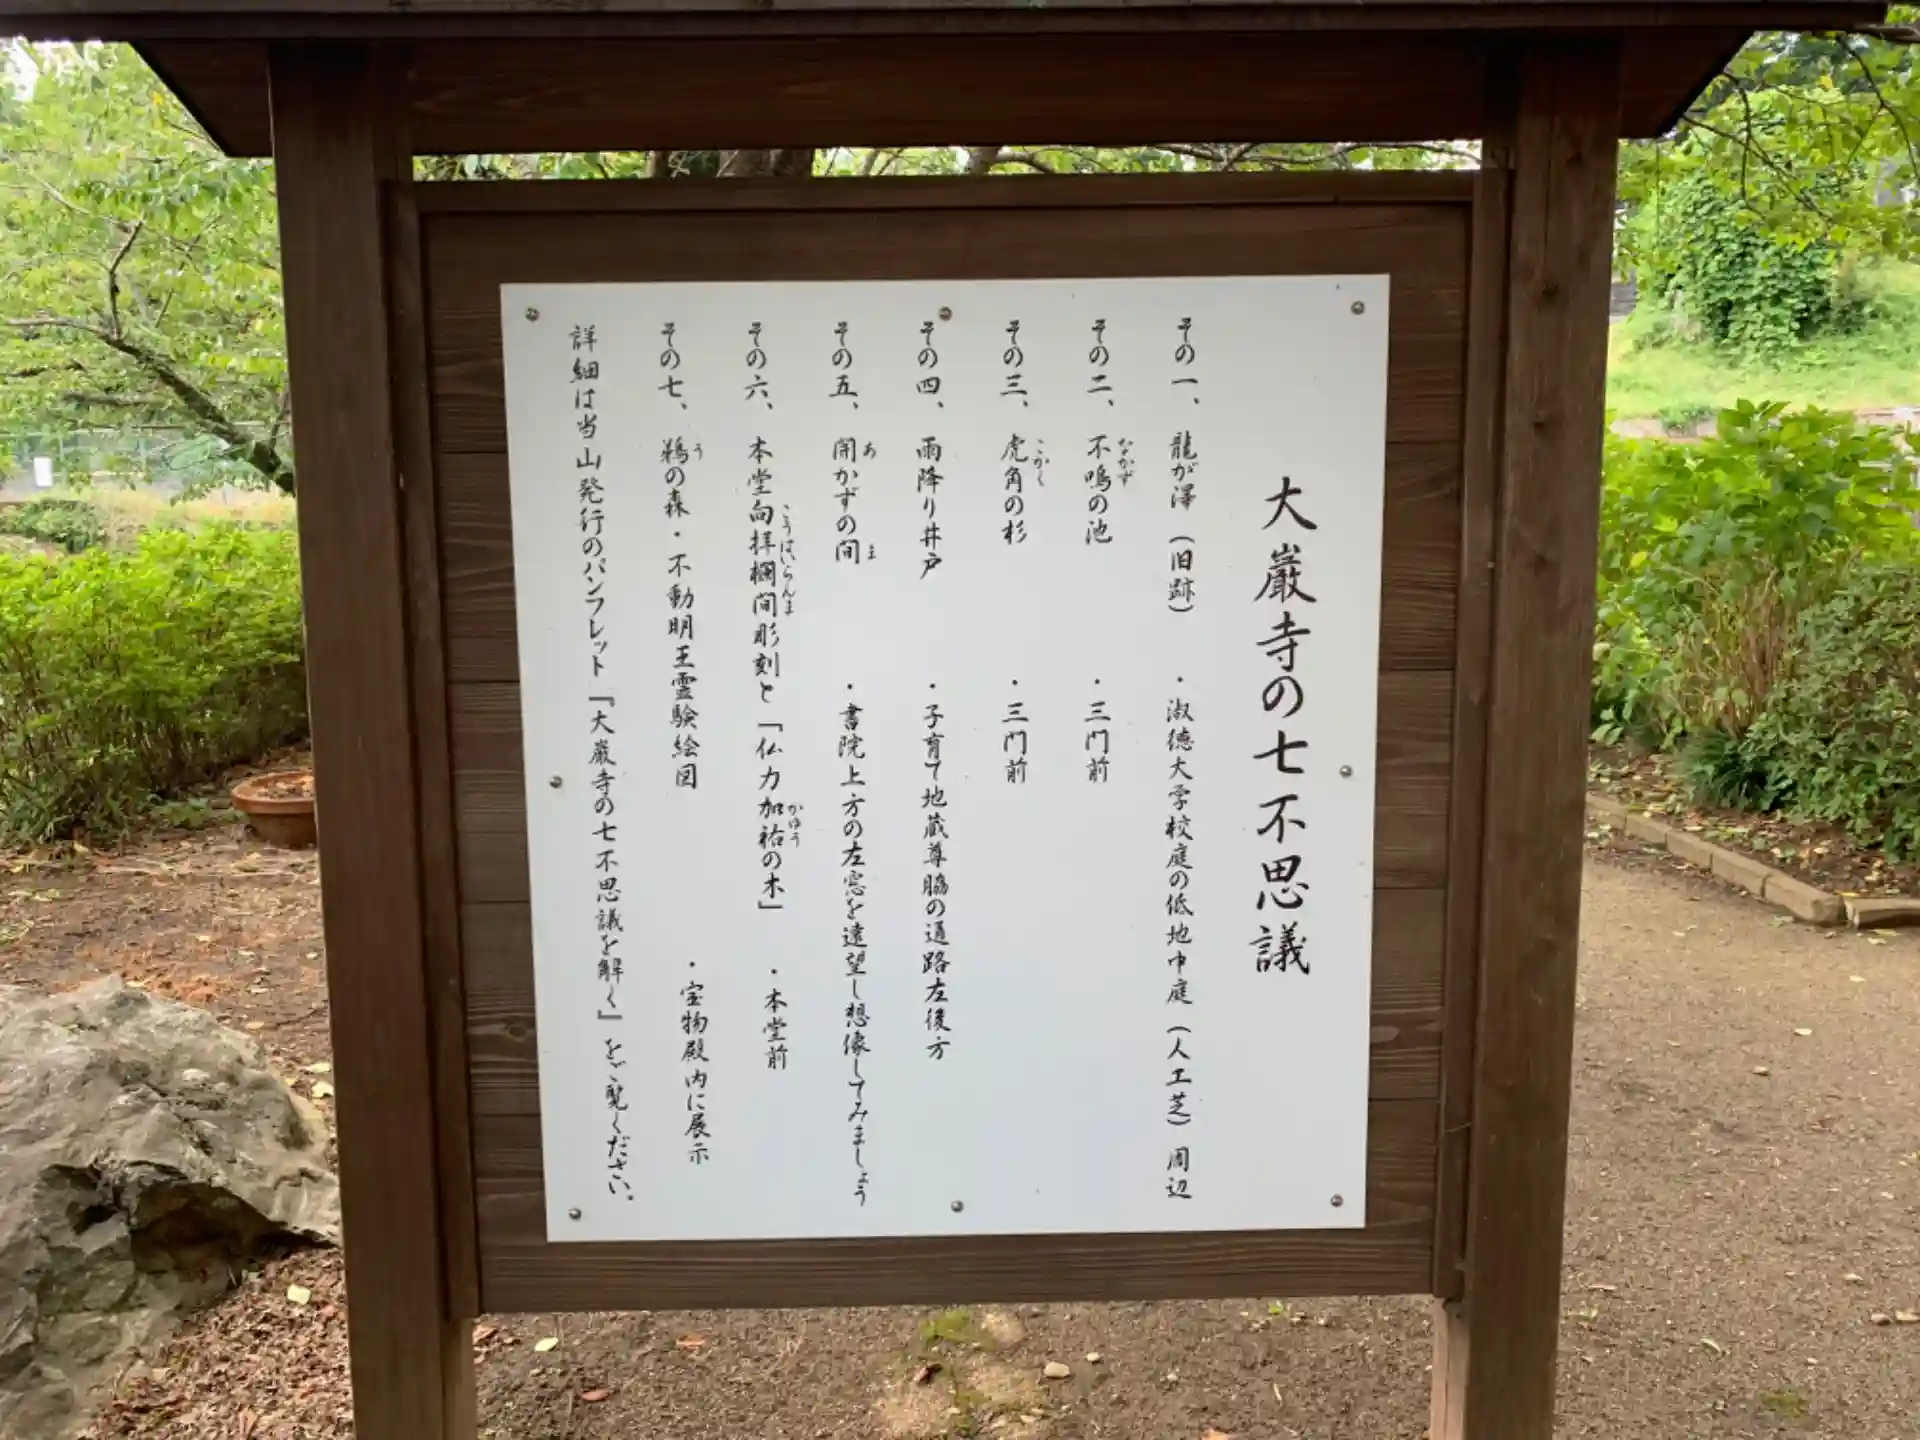 大巌寺の七不思議
その一、龍が澤（旧跡）　・淑徳大学校庭の低地中庭（人工芝）周辺
その二、不鳴の池　・三門前
なかず
その三、虎角の杉　・三門前
こかく
その四、雨降り井戸　・子育て地蔵尊脇の通路左後方
その五、開かずの間　・書院上方の左窓を遠望し想像してみましょう
あ　ま
その六、本堂向拝欄間彫刻と「仏力加祐の木」　・本堂前
こうはいらんま　かゆう
その七、鵜の森・不動明王霊験絵図　・宝物殿内に展示
う
詳細は当山発行のパンフレット『大巌寺の七不思議を解く』をご覧ください。